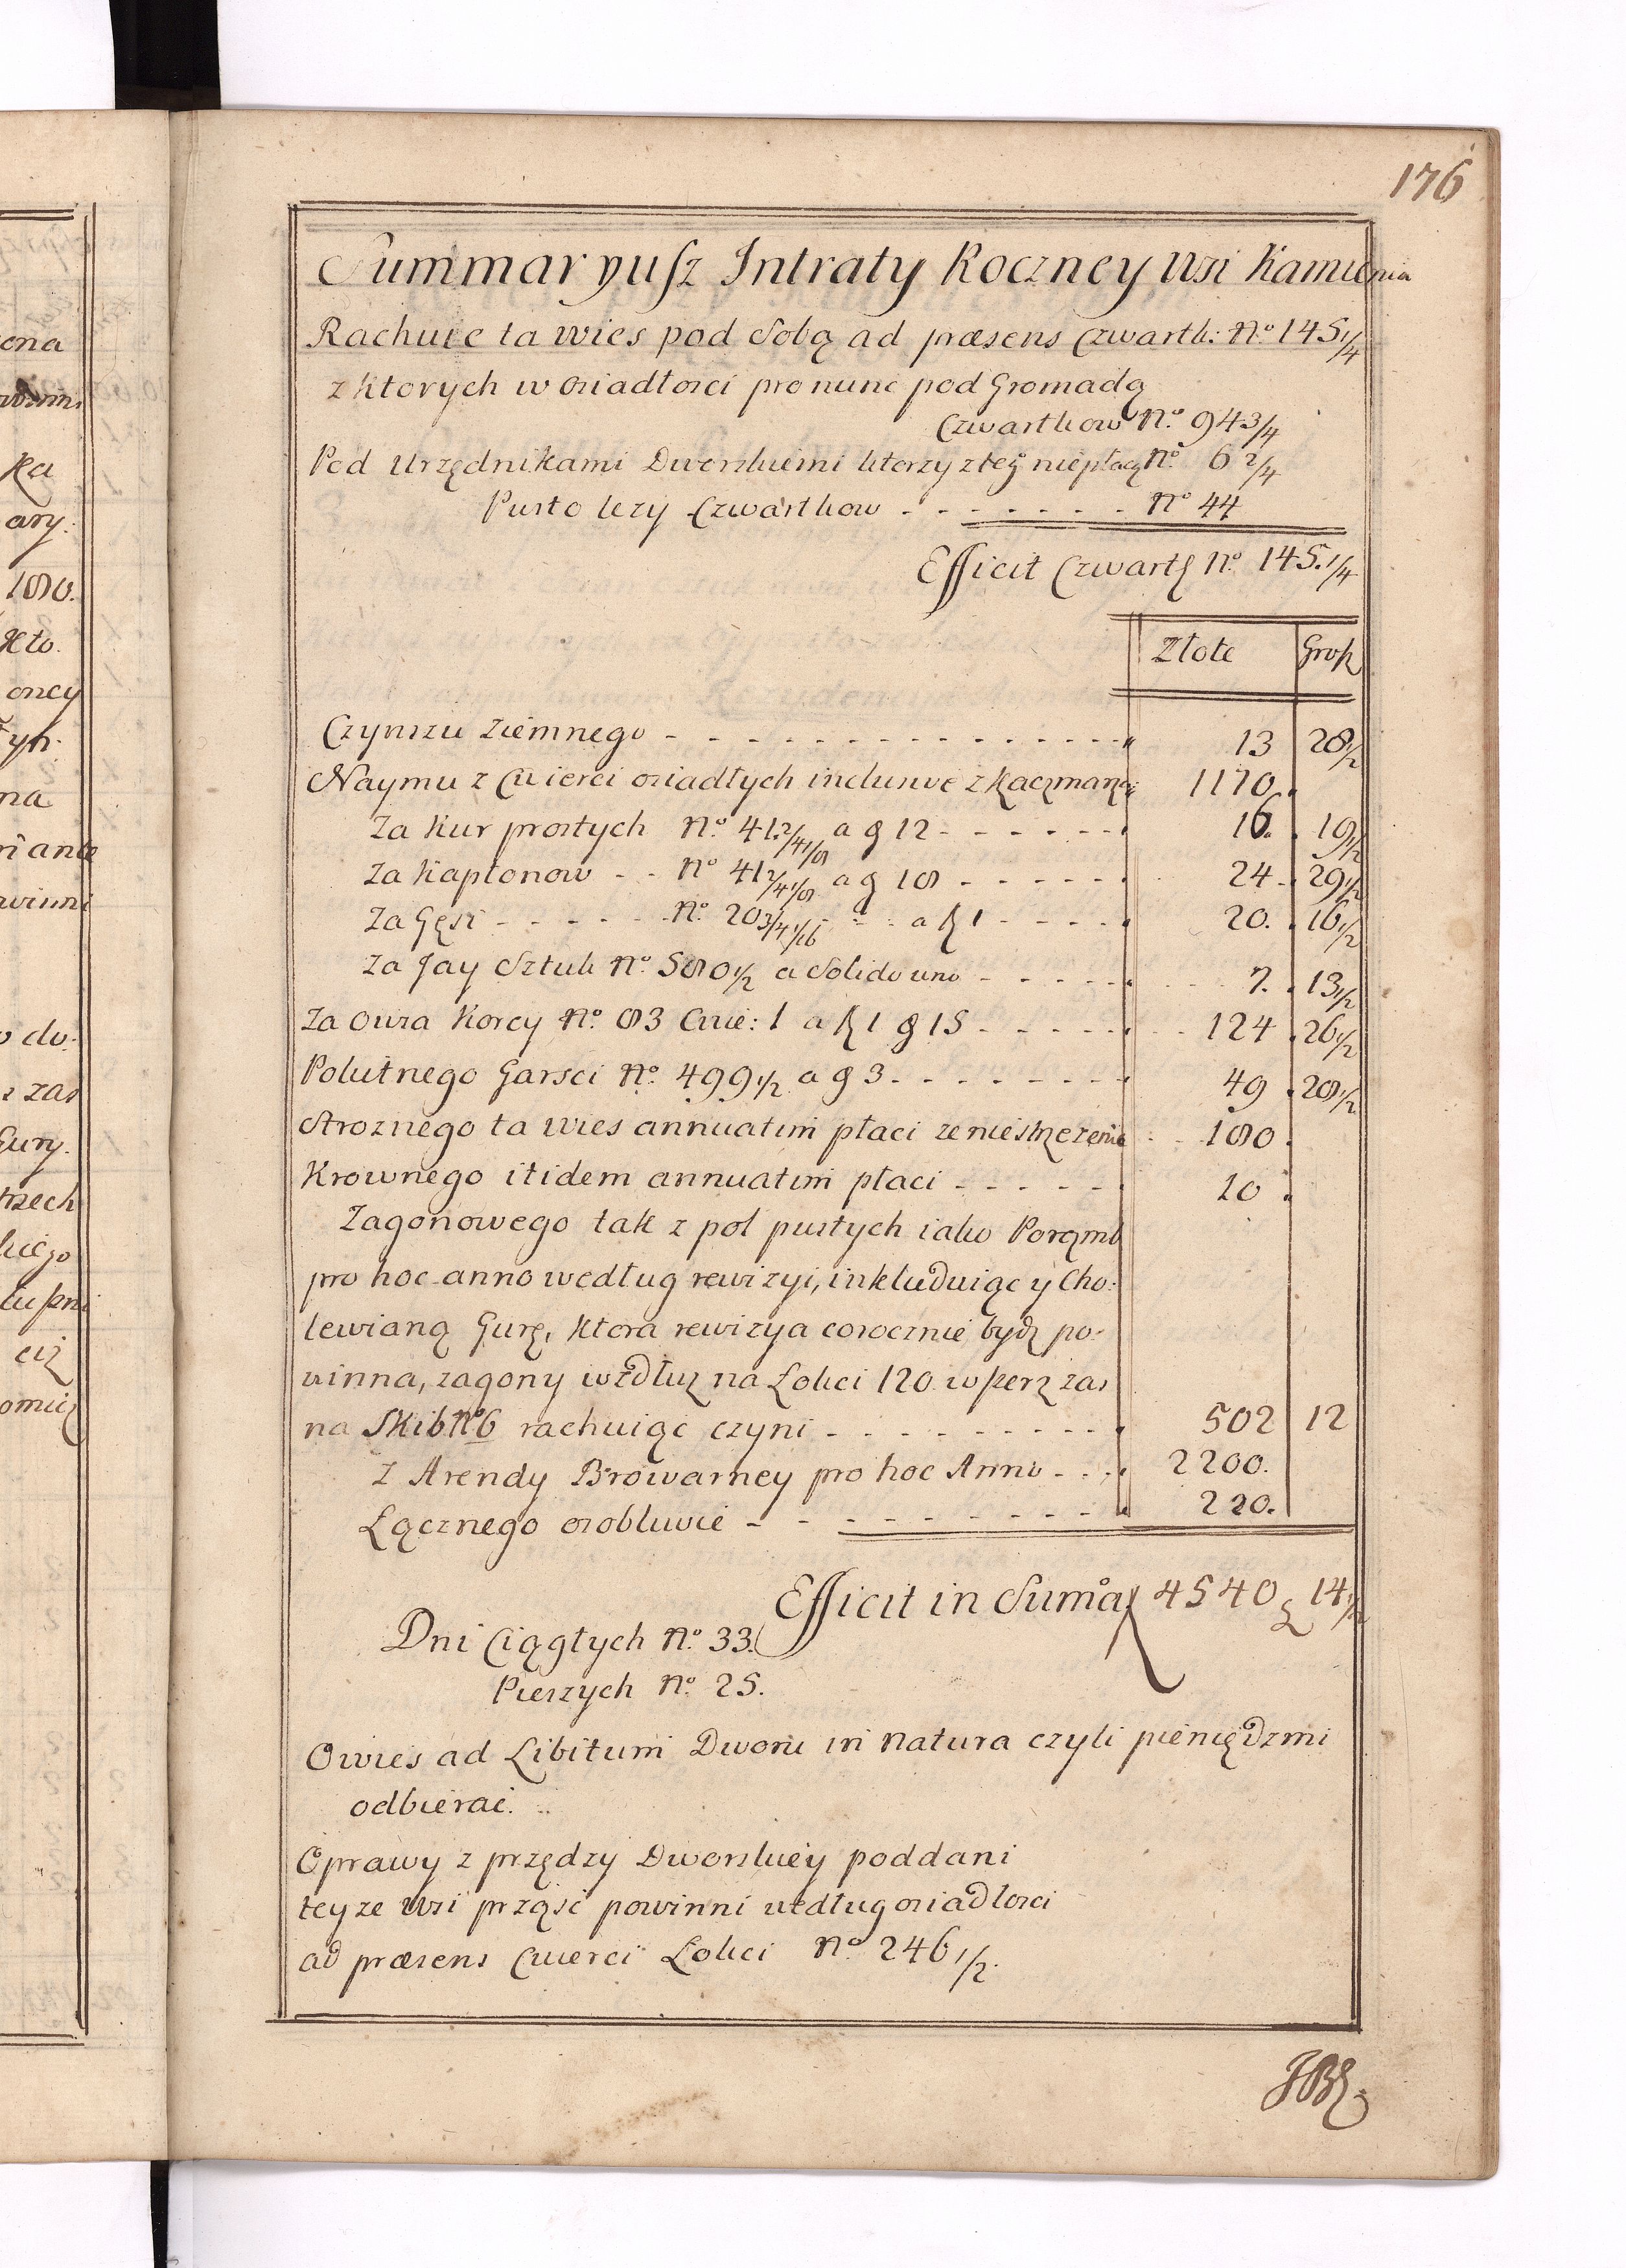 ona
ka
ary:
180.
kto.
oncy
na
winni
zas
Gury.
trzech
kiego
176
Summaryusz Intraty Roczney Wsi Kamienia
Rachuie ta wies pod Sobą ad præsens Czwartk: No. 145 1/4
z ktorych w osiadłosci pro nunc pod Gromadą
Czwartkow No. 94 3/4
Pod Urzędnikami Dworskiemi ktorzy z tey niepłacą No. 6 2/4
Pusto lezy Czwartkow - - - - - - - No 44
Efficit Czwartk No. 145. 1/4
Złote Grosz
Czynszu Ziemnego - - - - - - - - - - 13 28 1/2
Naymu z Cwierci osiadłych inclusive z kaczmarzą: 1170.
Za Kur prostych No. 41 2/4 1/8 a g 12 - - - - - 16. 19 1/2
Za Kapłonow - - No 41 2/4 1/8 a g 18 - - - - - 24 - 29 1/2
Za Gęsi - - - - - No. 20 3/4 1/16 - - a zł 1 - - - - 20. 16 1/2
Za Jay Sztuk No. 580 1/2 a Solido uno - - - - - 7. 13 1/2
Za Owsa Korcy No. 83 Cwie: 1 a zł 1 g 15 - - - - - 124 26 1/2
Polutnego Garsci No. 499 1/2 a g 3 - - - - - - - 49 28 1/2
Stroznego ta wies annuatim płaci ze niestrzezenie 180.
Krownego itidem annuatim płaci - - - - - 10.
Zagonowego tak z pol pustych iako Porąmb
pro hoc anno według rewizyi, inkluduiąc y Cho:
lewianą Gurę, Ktora rewizya corocznie bydz po-
winna, zagony wzdłuz na Łokci 120. w szerz zas
na Skib No 6 rachuiąc czyni - - - - - - - - 502 12
Z Arendy Browarney pro hoc Anno - - - 2200.
Łącznego osobliwie - - - - - - - - - 220.
Efficit in Suma zł 4540 g 14 1/2
Dni Ciągłych No. 33.
Pieszych No. 25.
Owies ad Libitum Dworu in natura czyli pieniędzmi
odbierac.
Oprawy z przędzy Dworskiey poddani
teyze Wsi prząsc powinni według osiadlosci
ad præsens Cwierci Łokci No. 246 1/2.